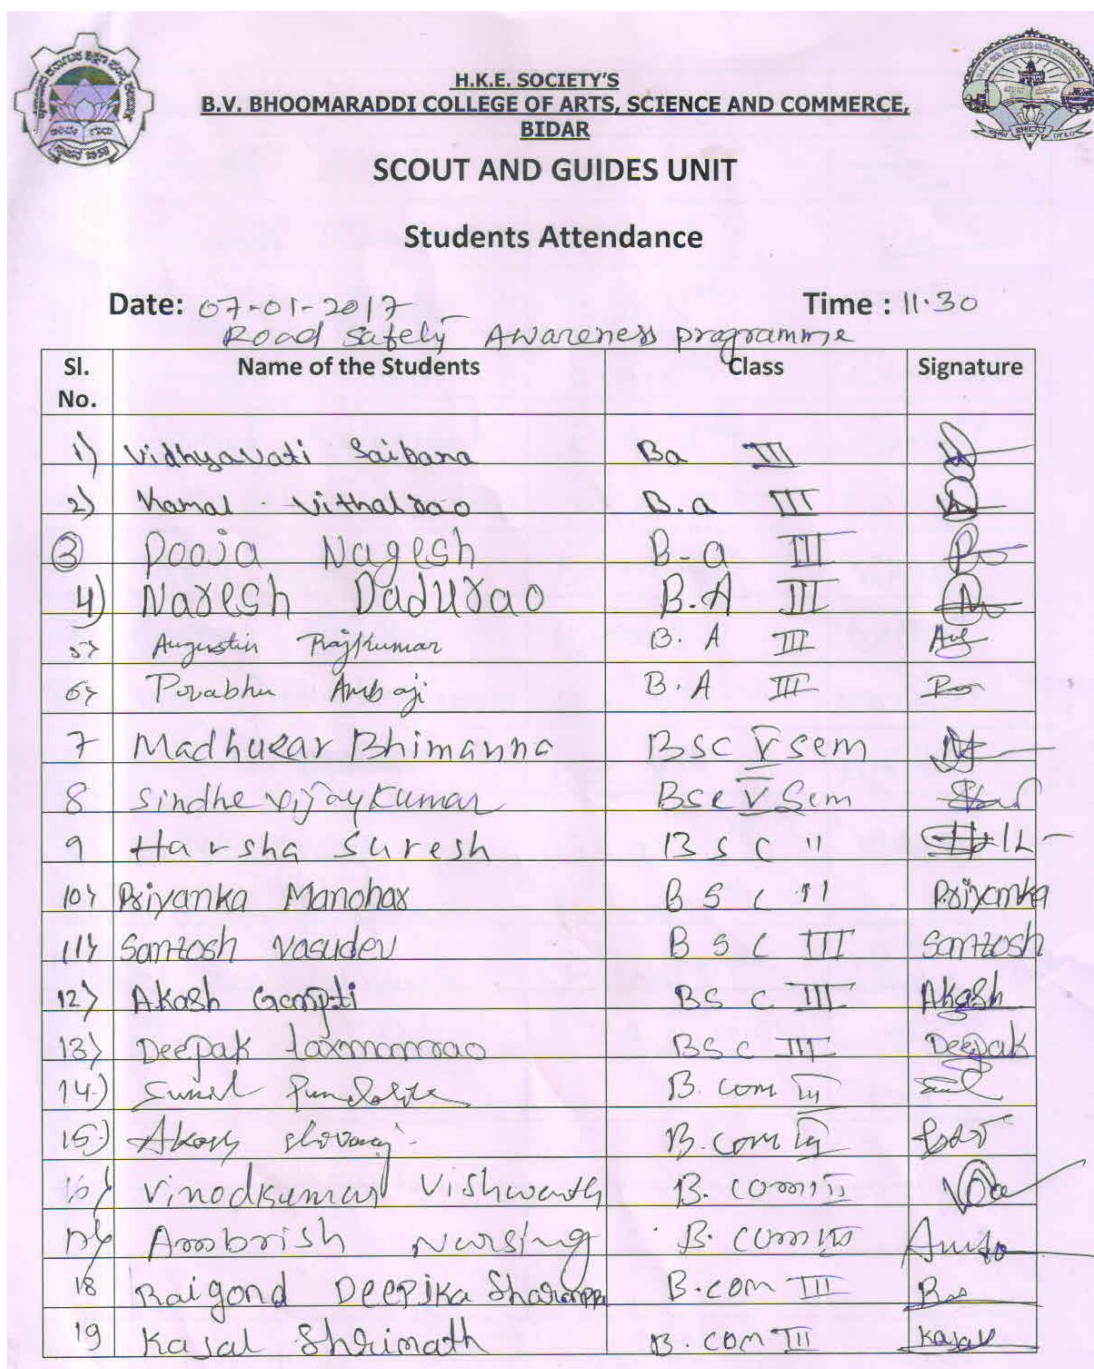 H.K.E. SOCIETY'S
B.V. BHOOMARADDI COLLEGE OF ARTS, SCIENCE AND COMMERCE,
BIDAR
SCOUT AND GUIDES UNIT
Students Attendance
Date: 07-01-2017 Time : 11.30
Road Safety Awareness programme
Sl. No. Name of the Students Class Signature
1) Vidhyavati Saibana Ba III
2) Kamal Vithalrao B.a III
3 Pooja Nagesh B-a III
4) Naresh Dadurao B.A III
5> Augustin Rajkumar B. A III
6> Prabhu Ambaji B. A III
7 Madhukar Bhimanna BSC V sem
8 Sindhe vijaykumar BSC V Sem
9 Harsha Suresh BSC II
10> Priyanka Manohar BSC II Priyanka
11> Santosh Vasudev BSC III Santosh
12> Akash BSC III Akash
13> Deepak laxmanrao BSC III Deepak
14.) Sunil B. com III
15.) Akash B. com III
16> Vinodkumar Vishwanth B. com III
17> Ambrish Nursing B. com III
18 Raigond Deepika Sharanppa B.com III
19 Kajal Shrimath B. com III Kajal